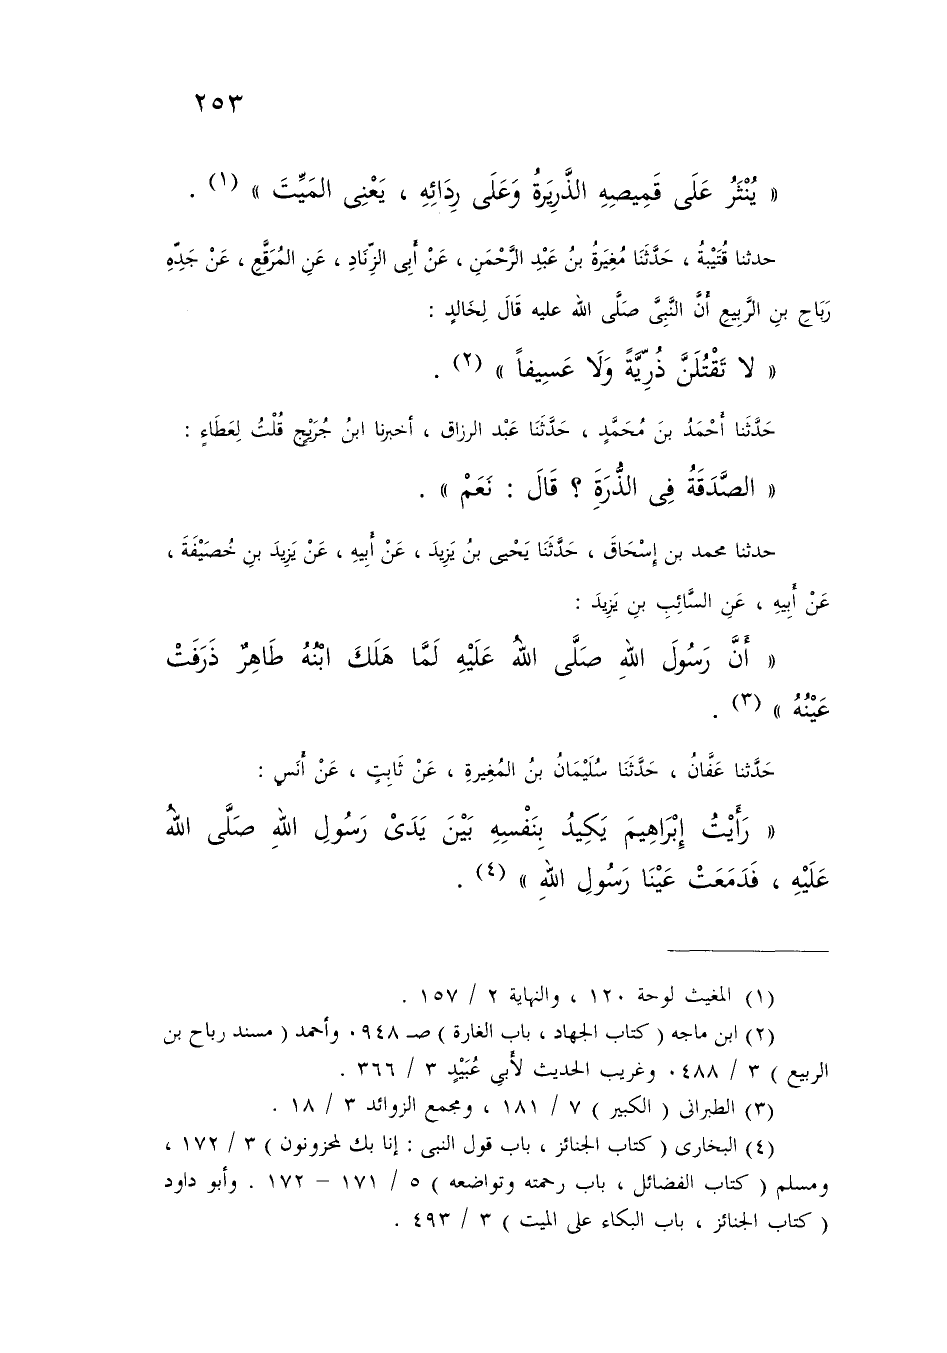 ٢٥٣
« يُنْثَرُ عَلَى قَمِيصِهِ الذَّرِيَرةُ وَعَلَى رِدَائِهِ ، يَعْنِى المَيِّتَ » (١) .
حدثنا قُتَيْبةُ ، حَدَّثَنَا مُغِيَرةُ بنُ عَبْدِ الرَّحْمَنِ ، عَنْ أَبِى الزِّنَادِ ، عَنِ المُرَقَّعِ ، عَنْ جَدِّهِ
رَبَاحِ بنِ الرَّبِيعِ أَنَّ النَّبِىَّ صَلَّى الله عليه قَالَ لِخَالدٍ :
« لا تَقْتُلَنَّ ذُرِّيَّةً وَلَا عَسِيفاً » (٢) .
حَدَّثَنا أَحْمَدُ بنَ مُحَمَّدٍ ، حَدَّثَنَا عَبْد الرزاق ، أخبرنا ابنُ جُرَيْجٍ قُلْتُ لِعَطَاءٍ :
« الصَّدَقَةُ فِى الذُّرَةَِ ؟ قَالَ : نَعَمْ » .
حدثنا محمد بن إِسْحَاقَ ، حَدَّثَنَا يَحْيى بنُ يَزِيدَ ، عَنْ أَبِيهِ ، عَنْ يَزِيدَ بنِ خُصَيْفَةَ ،
عَنْ أَبِيهِ ، عَنِ السَّائِبِ بنِ يَزِيدَ :
« أَنَّ رَسُولَ اللهِ صَلَّى اللهُ عَلَيْهِ لَمَّا هَلَكَ ابْنُهُ طَاهِرٌ ذَرَفَتْ
عَيْنُهُ » (٣) .
حَدَّثنا عَفَّانُ ، حَدَّثَنَا سُلَيْمَانُ بنُ المُغِيرةِ ، عَنْ ثَابِتٍ ، عَنْ أَنَسٍ :
« رَأَيْتُ إِبْرَاهِيمَ يَكِيدُ بِنَفْسِهِ بَيْنَ يَدَىْ رَسُولِ اللهِ صَلَّى اللهُ
عَلَيْهِ ، فَدَمَعَتْ عَيْنَا رَسُولِ اللهِ » (٤) .
(١) المغيث لوحة ١٢٠ ، والنهاية ٢ / ١٥٧ .
(٢) ابن ماجه ( كتاب الجهاد ، باب الغارة ) صـ ٩٤٨٠ وأحمد ( مسند رباح بن
الربيع ) ٣ / ٤٨٨٠ وغريب الحديث لأَبِي عُبَيْدٍ ٣ / ٣٦٦ .
(٣) الطبرانى ( الكبير ) ٧ / ١٨١ ، ومجمع الزوائد ٣ / ١٨ .
(٤) البخارى ( كتاب الجنائز ، باب قول النبى : إنا بك لمحزونون ) ٣ / ١٧٢ ،
ومسلم ( كتاب الفضائل ، باب رحمته وتواضعه ) ٥ / ١٧١ – ١٧٢ . وأبو داود
( كتاب الجنائز ، باب البكاء على الميت ) ٣ / ٤٩٣ .